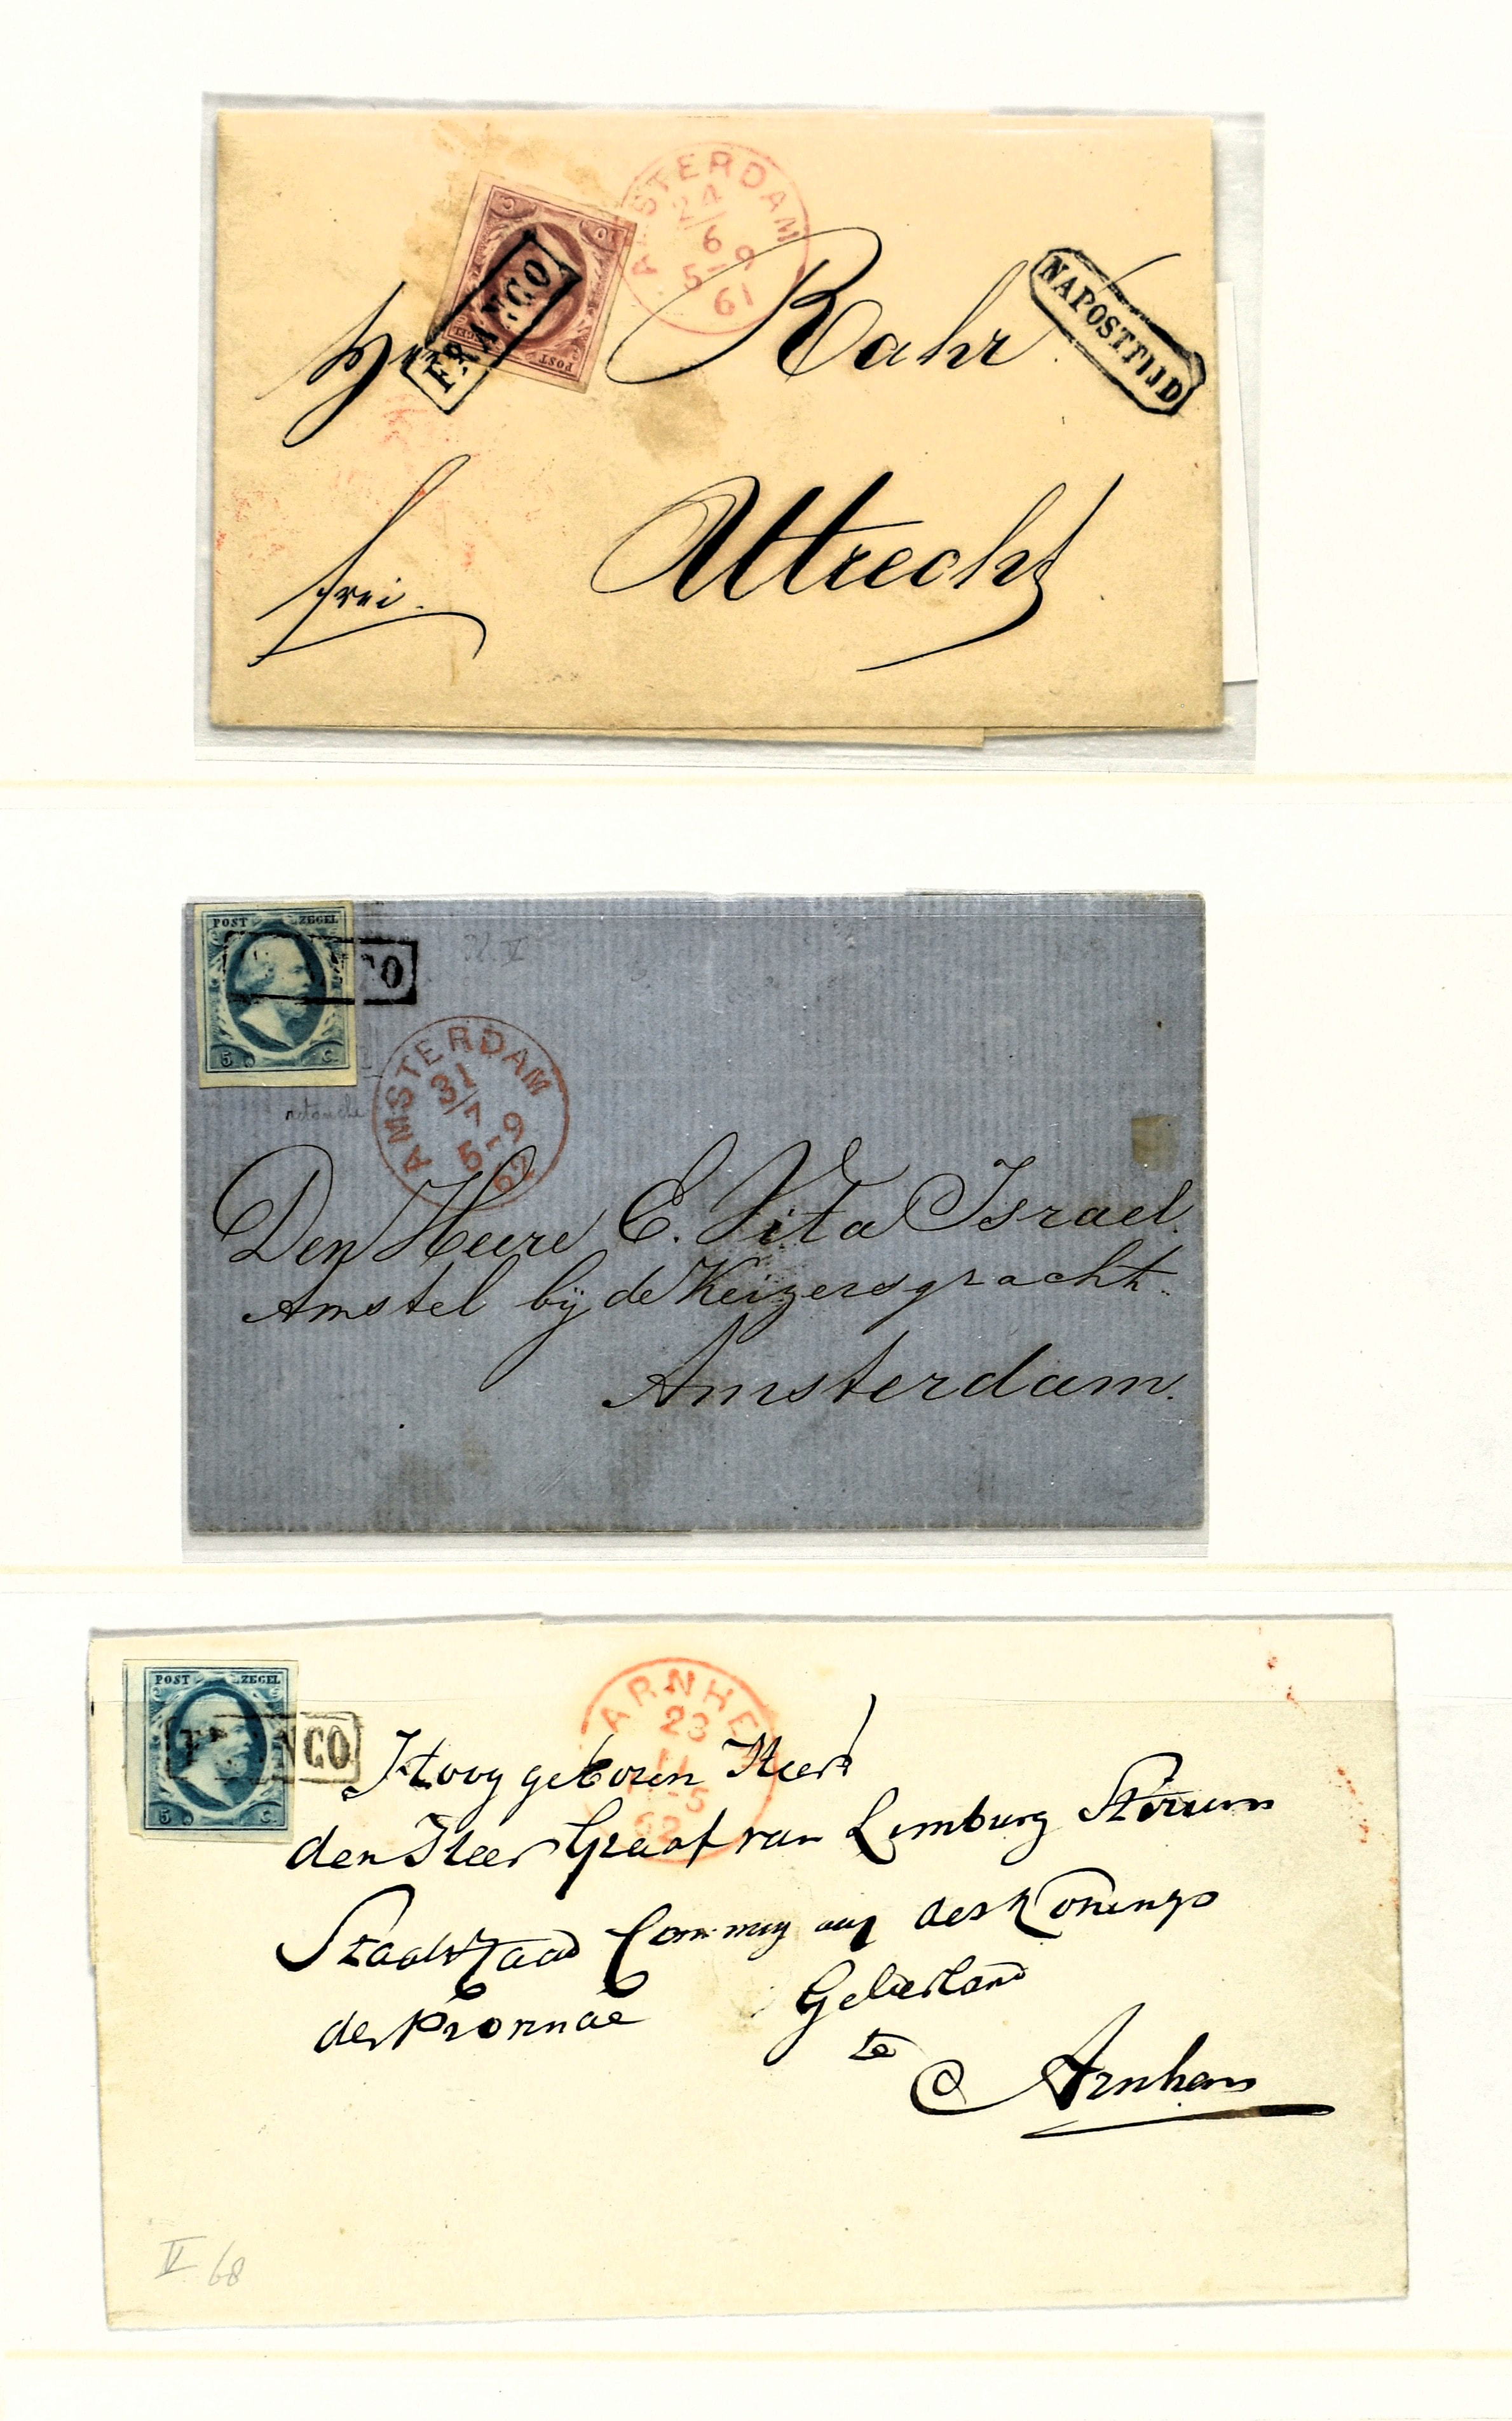 AMSTERDAM
24/6
5-9
61
FRANCO
POST
NAPOSTTIJD
Rahr
frei.
Uttrecht
POST ZEGEL
5 C.
CO
V
retouche
AMSTERDAM
31/7
5-9
62
Den Heere E. Vita Israel.
Amstel bij de Keizersgracht.
Amsterdam.
POST ZEGEL
5 C.
FRANCO
ARNHE
23
5
62
Hooggeboren Heer
den Heer Graaf van Limburg Stirum
Staatsraad Comm des Konings
der Provincie Gelderland
te
Arnhem
V 68